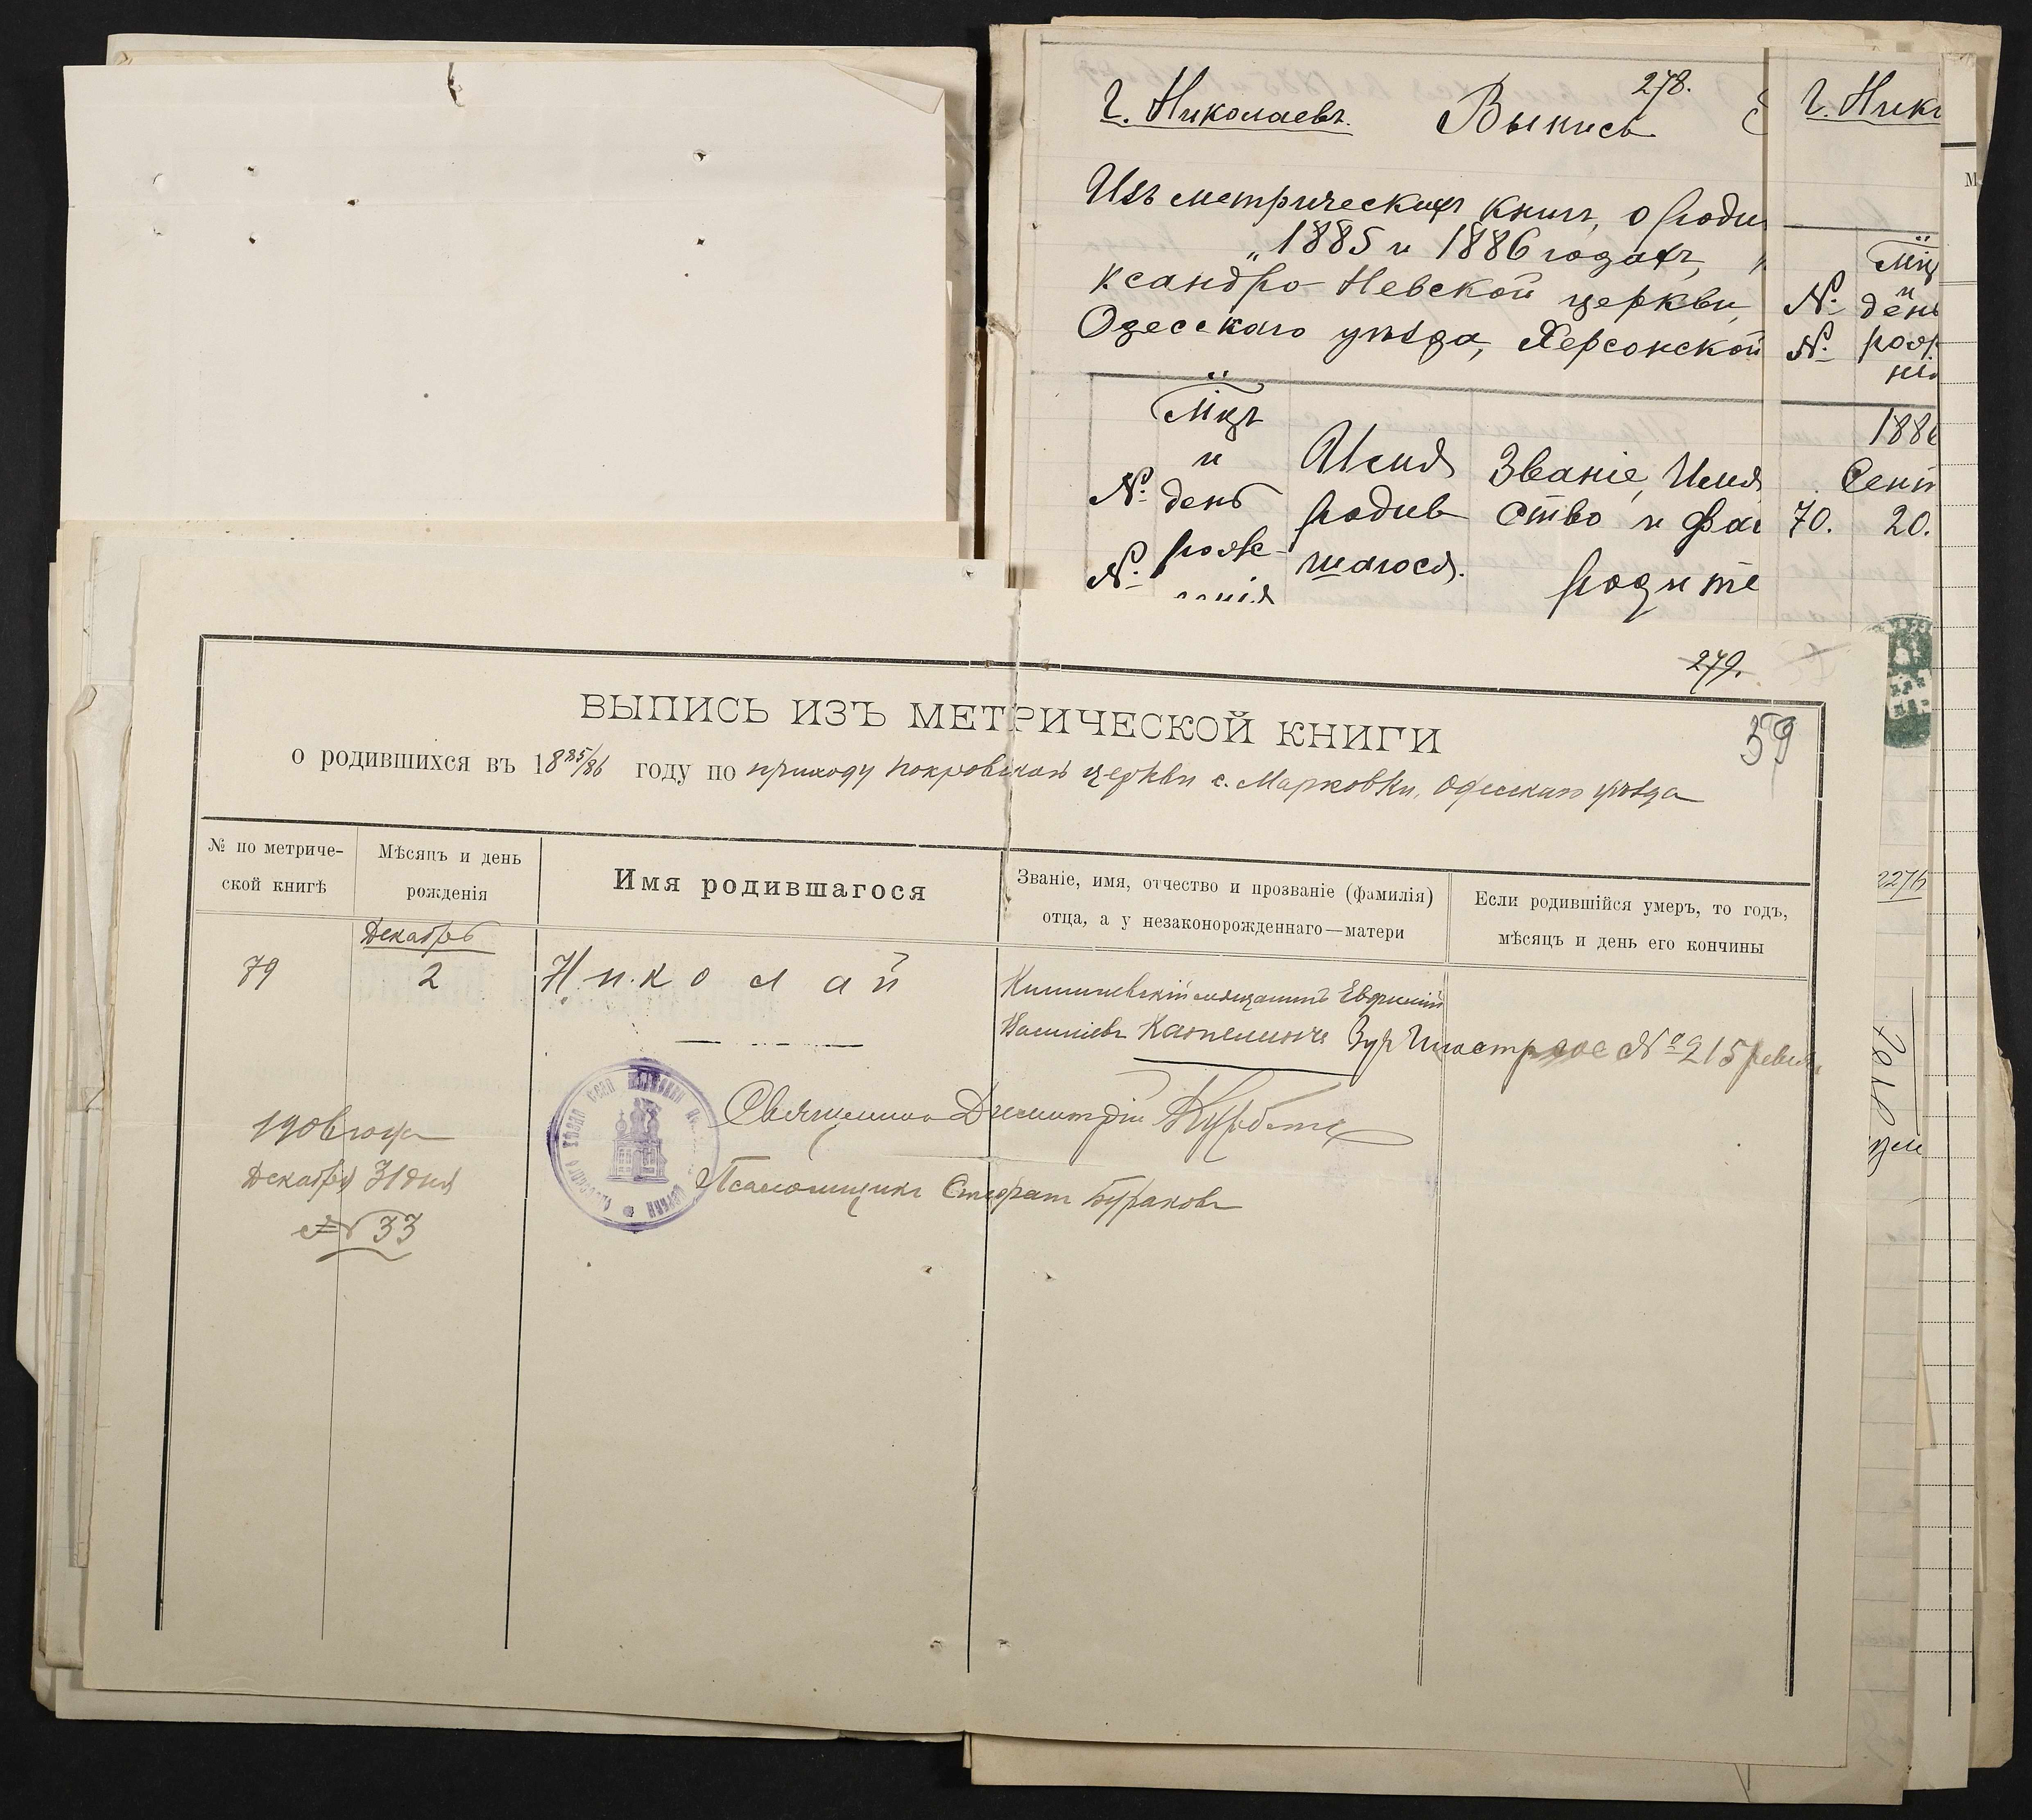 278.
г. Николаевъ. Выпись
Изъ метрическихъ книгъ, о роди
„1885 и 1886 годахъ,
ксандро-Невской церкви,
Одесскаго уѣзда, Херсонской
№ №
Мѣцъ и день рож-
Имя родив шагося.
Званіе, Имя
ство и фа
родите
г. Нико
№ №
Мѣц
и
день
рож
1886
Сент
70. 20.
279.
59
ВЫПИСЬ ИЗЪ МЕТРИЧЕСКОЙ КНИГИ
о родившихся въ 1885/86 году по приходу Покровской церкви с. Марковки, Одесскаго уѣзда
№ по метриче-
ской книгѣ
Мѣсяцъ и день
рожденія
Имя родившагося
Званіе, имя, отчество и прозваніе (фамилія)
отца, а у незаконорожденнаго—матери
Если родившійся умеръ, то годъ,
мѣсяцъ и день его кончины
Декабрь
79 2 Николай
Кишиневскій мѣщанинъ Евфимій
Васильевъ № 215
Священникъ Димитрій
Псаломщикъ Бураковъ
1906 года
Декабря 31 дня
№ 33
2276